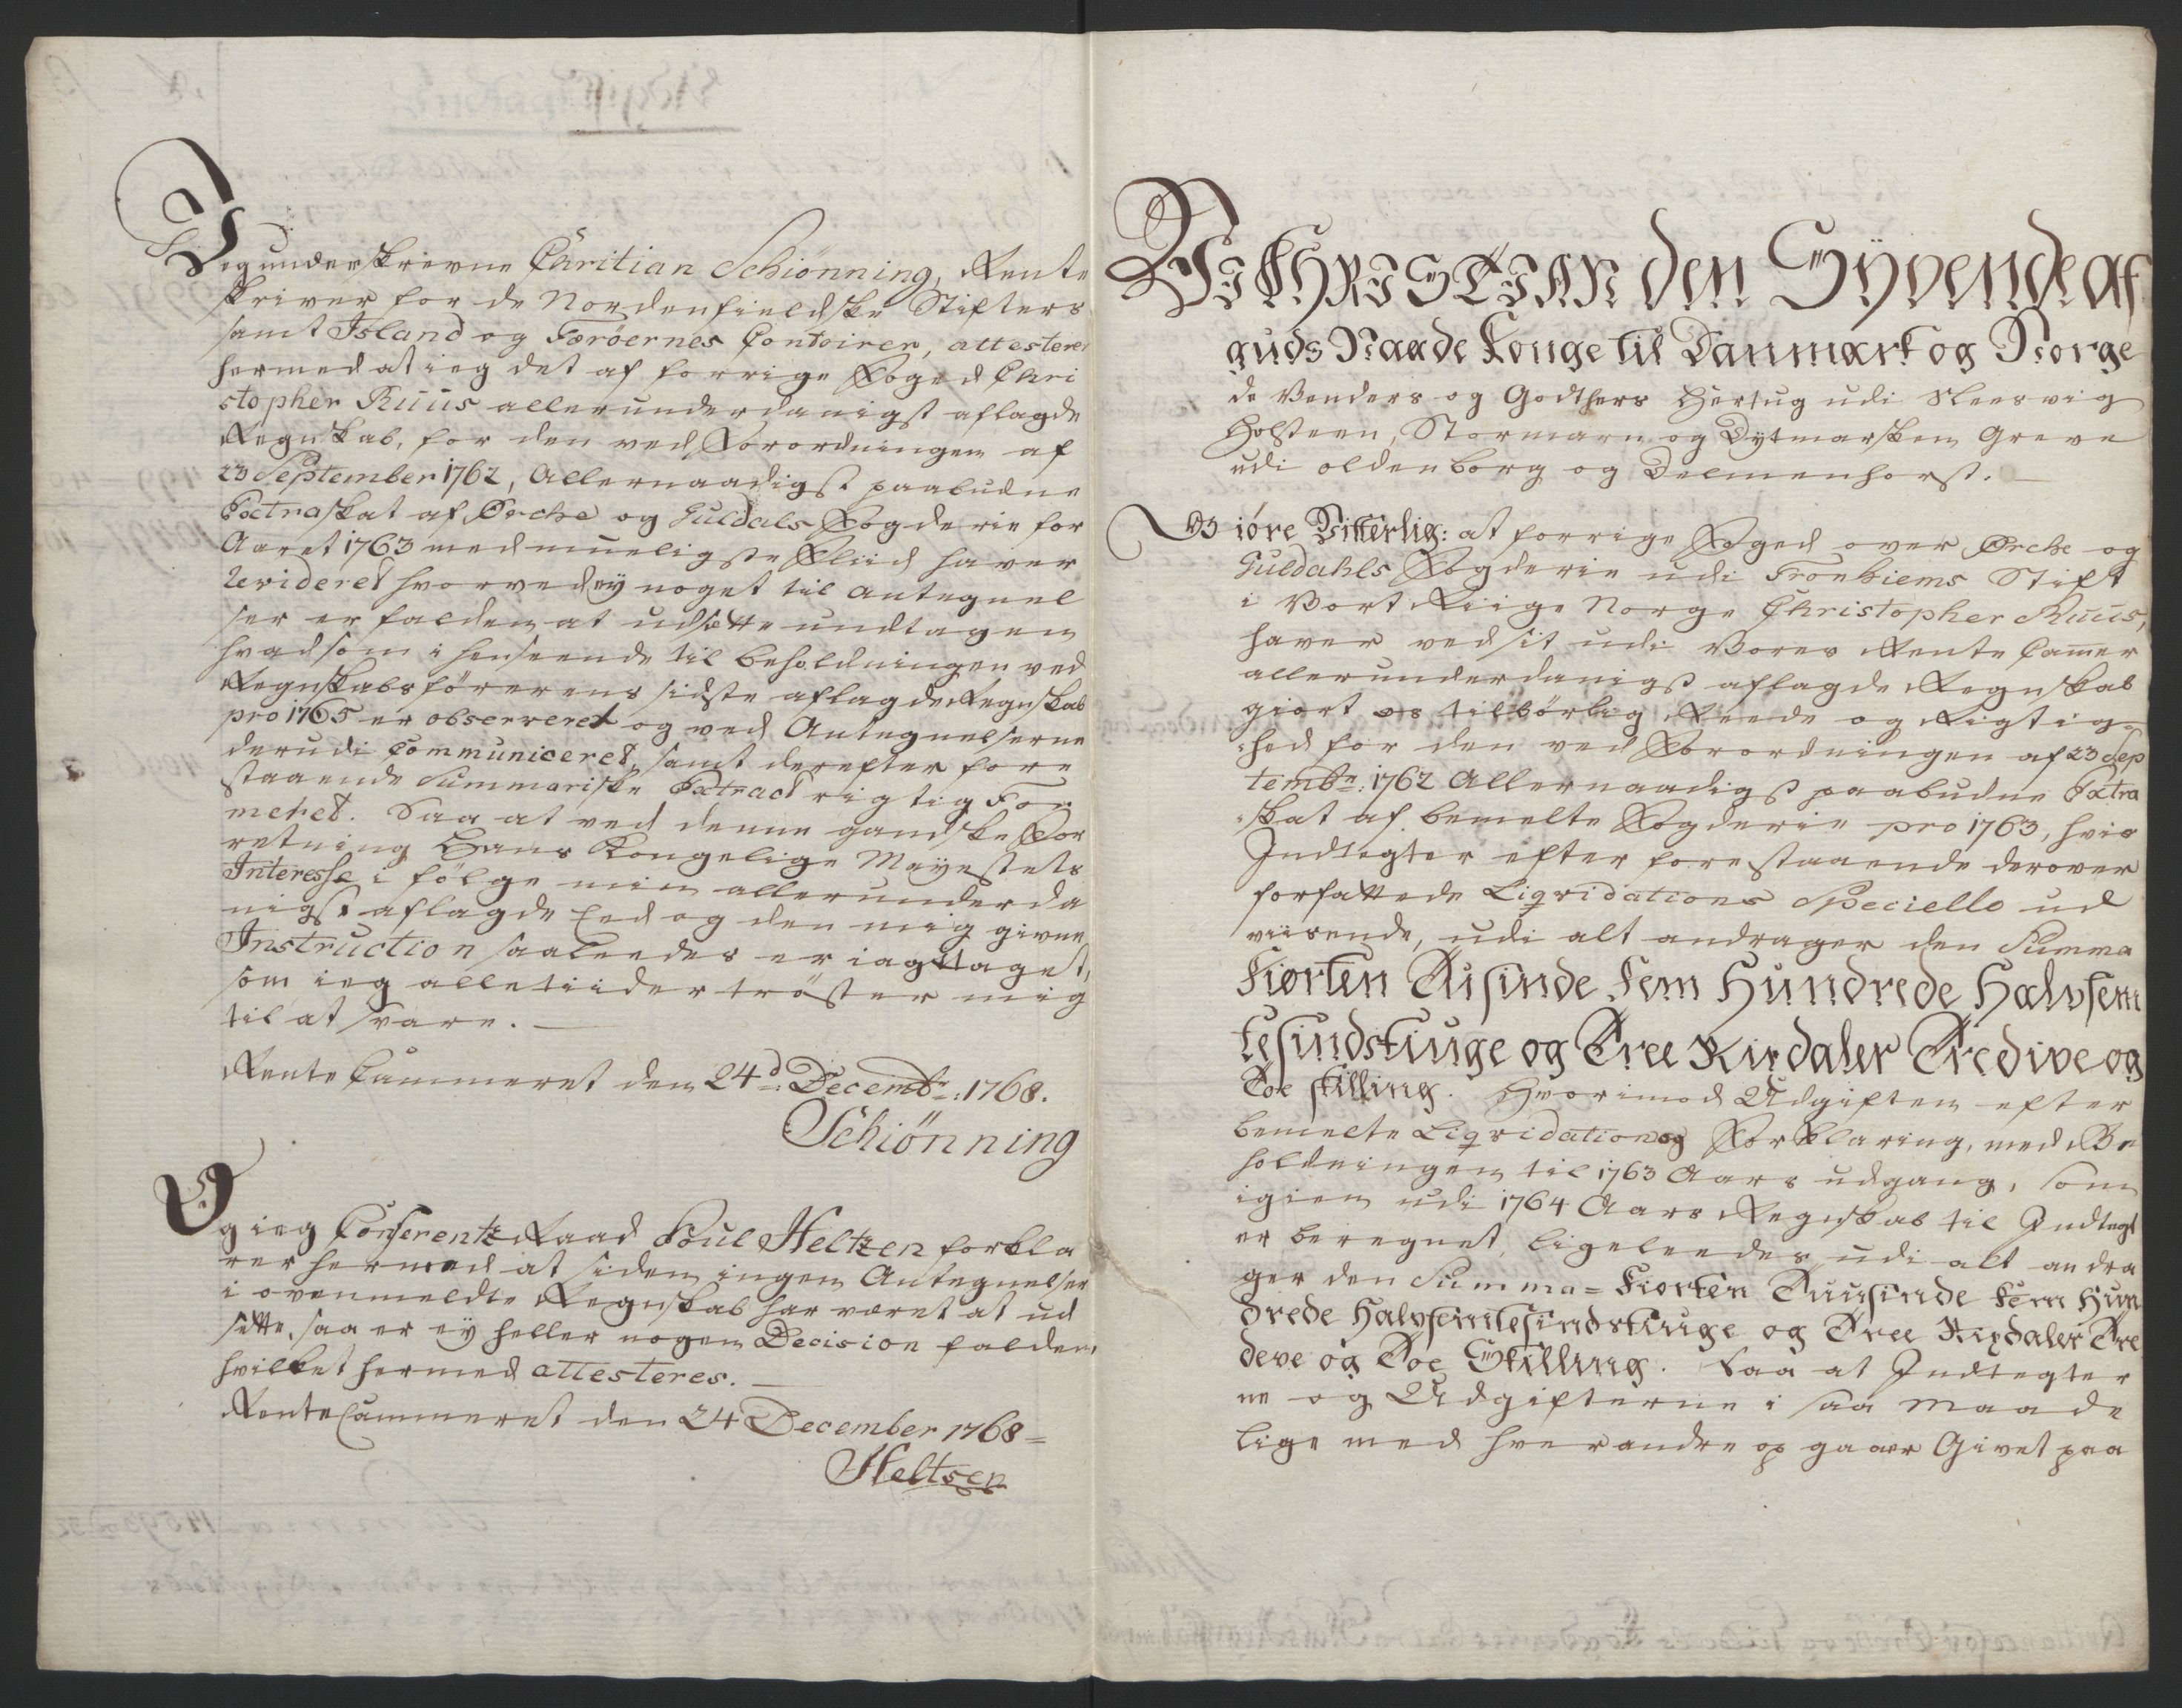 Jeg underskrevne Chritian Schiønning, Rente
skriver for de Nordenfieldske Stifters
samt Island og Færøernes Contoirer, attesterer
hermed at ieg det af forrige Foged Chri
stopher Ruus allerunderdanigst aflagde
Regnskab, for den ved Forordningen af
23 September 1762, Allernaadigst paabudne
Extraskat af Ørche og Guldals Fogderie for
Aaret 1763 med mueligste Fliid haver
Revideret hvorved ey noget til Antegnel
ser er falden at udsætte undtagen
hvad som i henseende til beholdningen ved
Regnskabsførerens sidste aflagde Regnskab
pro 1765 er observeret og ved Antegnelserne
derudi Communiceret, samt derefter fore
staaende Summariske Extract rigtig For
meret. Saa at ved denne gandske For
retning Hans Kongelige Mayestets
Interesse i følge min allerunderda
nigst aflagde Eed og den mig givne
Instruction saaleedes er iagttaget,
som ieg alletiider trøster mig
til at svare.
Rente Cammeret den 24d: Decembr: 1768.
Schiønning
Og ieg Conferentz Raad Poul Heltzen forkla
rer hermed at siden ingen Antegnelser
i ovenmeldte Regnskab har været at ud
sætte, saa er ey heller nogen Decision falden,
hvilket hermed attesteres.
Rente Cammeret den 24 December 1768
Heltsen
Vi CHRISTIAN den Syvende af
guds Naade Konge til Danmark og Norge
de Venders og Gothers Hertug udi Sleesvig
Holsteen, Stormarn og Dytmarsken Greve
udi oldenborg og Delmenhorst.
Giøre Vitterlig: at forrige Foged over Ørche og
Guldahls Fogderie udi Tronhiems Stift
i Vort Riige Norge Christopher Ruus,
haver ved sit udi Vores Rente Cammer
allerunderdanigst aflagde Regnskab
giort os tilbørlig Reede og Rigtig-
hed for den ved Forordningen af 23 Sep
tembr: 1762 Allernaadigst paabudne Extra
skat af bemelte Fogderie pro 1763, hvis
Indtegter efter forestaaende derover
forfattede Liqvidations Speciello ud
viisende, udi alt andrager den Summa
Fiorten Tusinde Fem Hundrede Halvfem
tesindstiuge og Tree Rixdaler Tredive og
Toe skilling. Hvorimod Udgiften efter
bemelte Liqvidation og Forklaring, med Be
holdningen til 1763 Aars udgang, som
igien udi 1764 Aars Regnskab til Indtegt
er beregnet, ligeleedes udi alt andra
ger den Summa = Fiorten Tuusinde Fem Hun
drede Halvfemtesindstiuge og Tree Rixdaler Tre
deve og Toe Skilling. Saa at Indtegter
ne og Udgifterne i saa maade
lige med hverandre op gaaer Givet paa